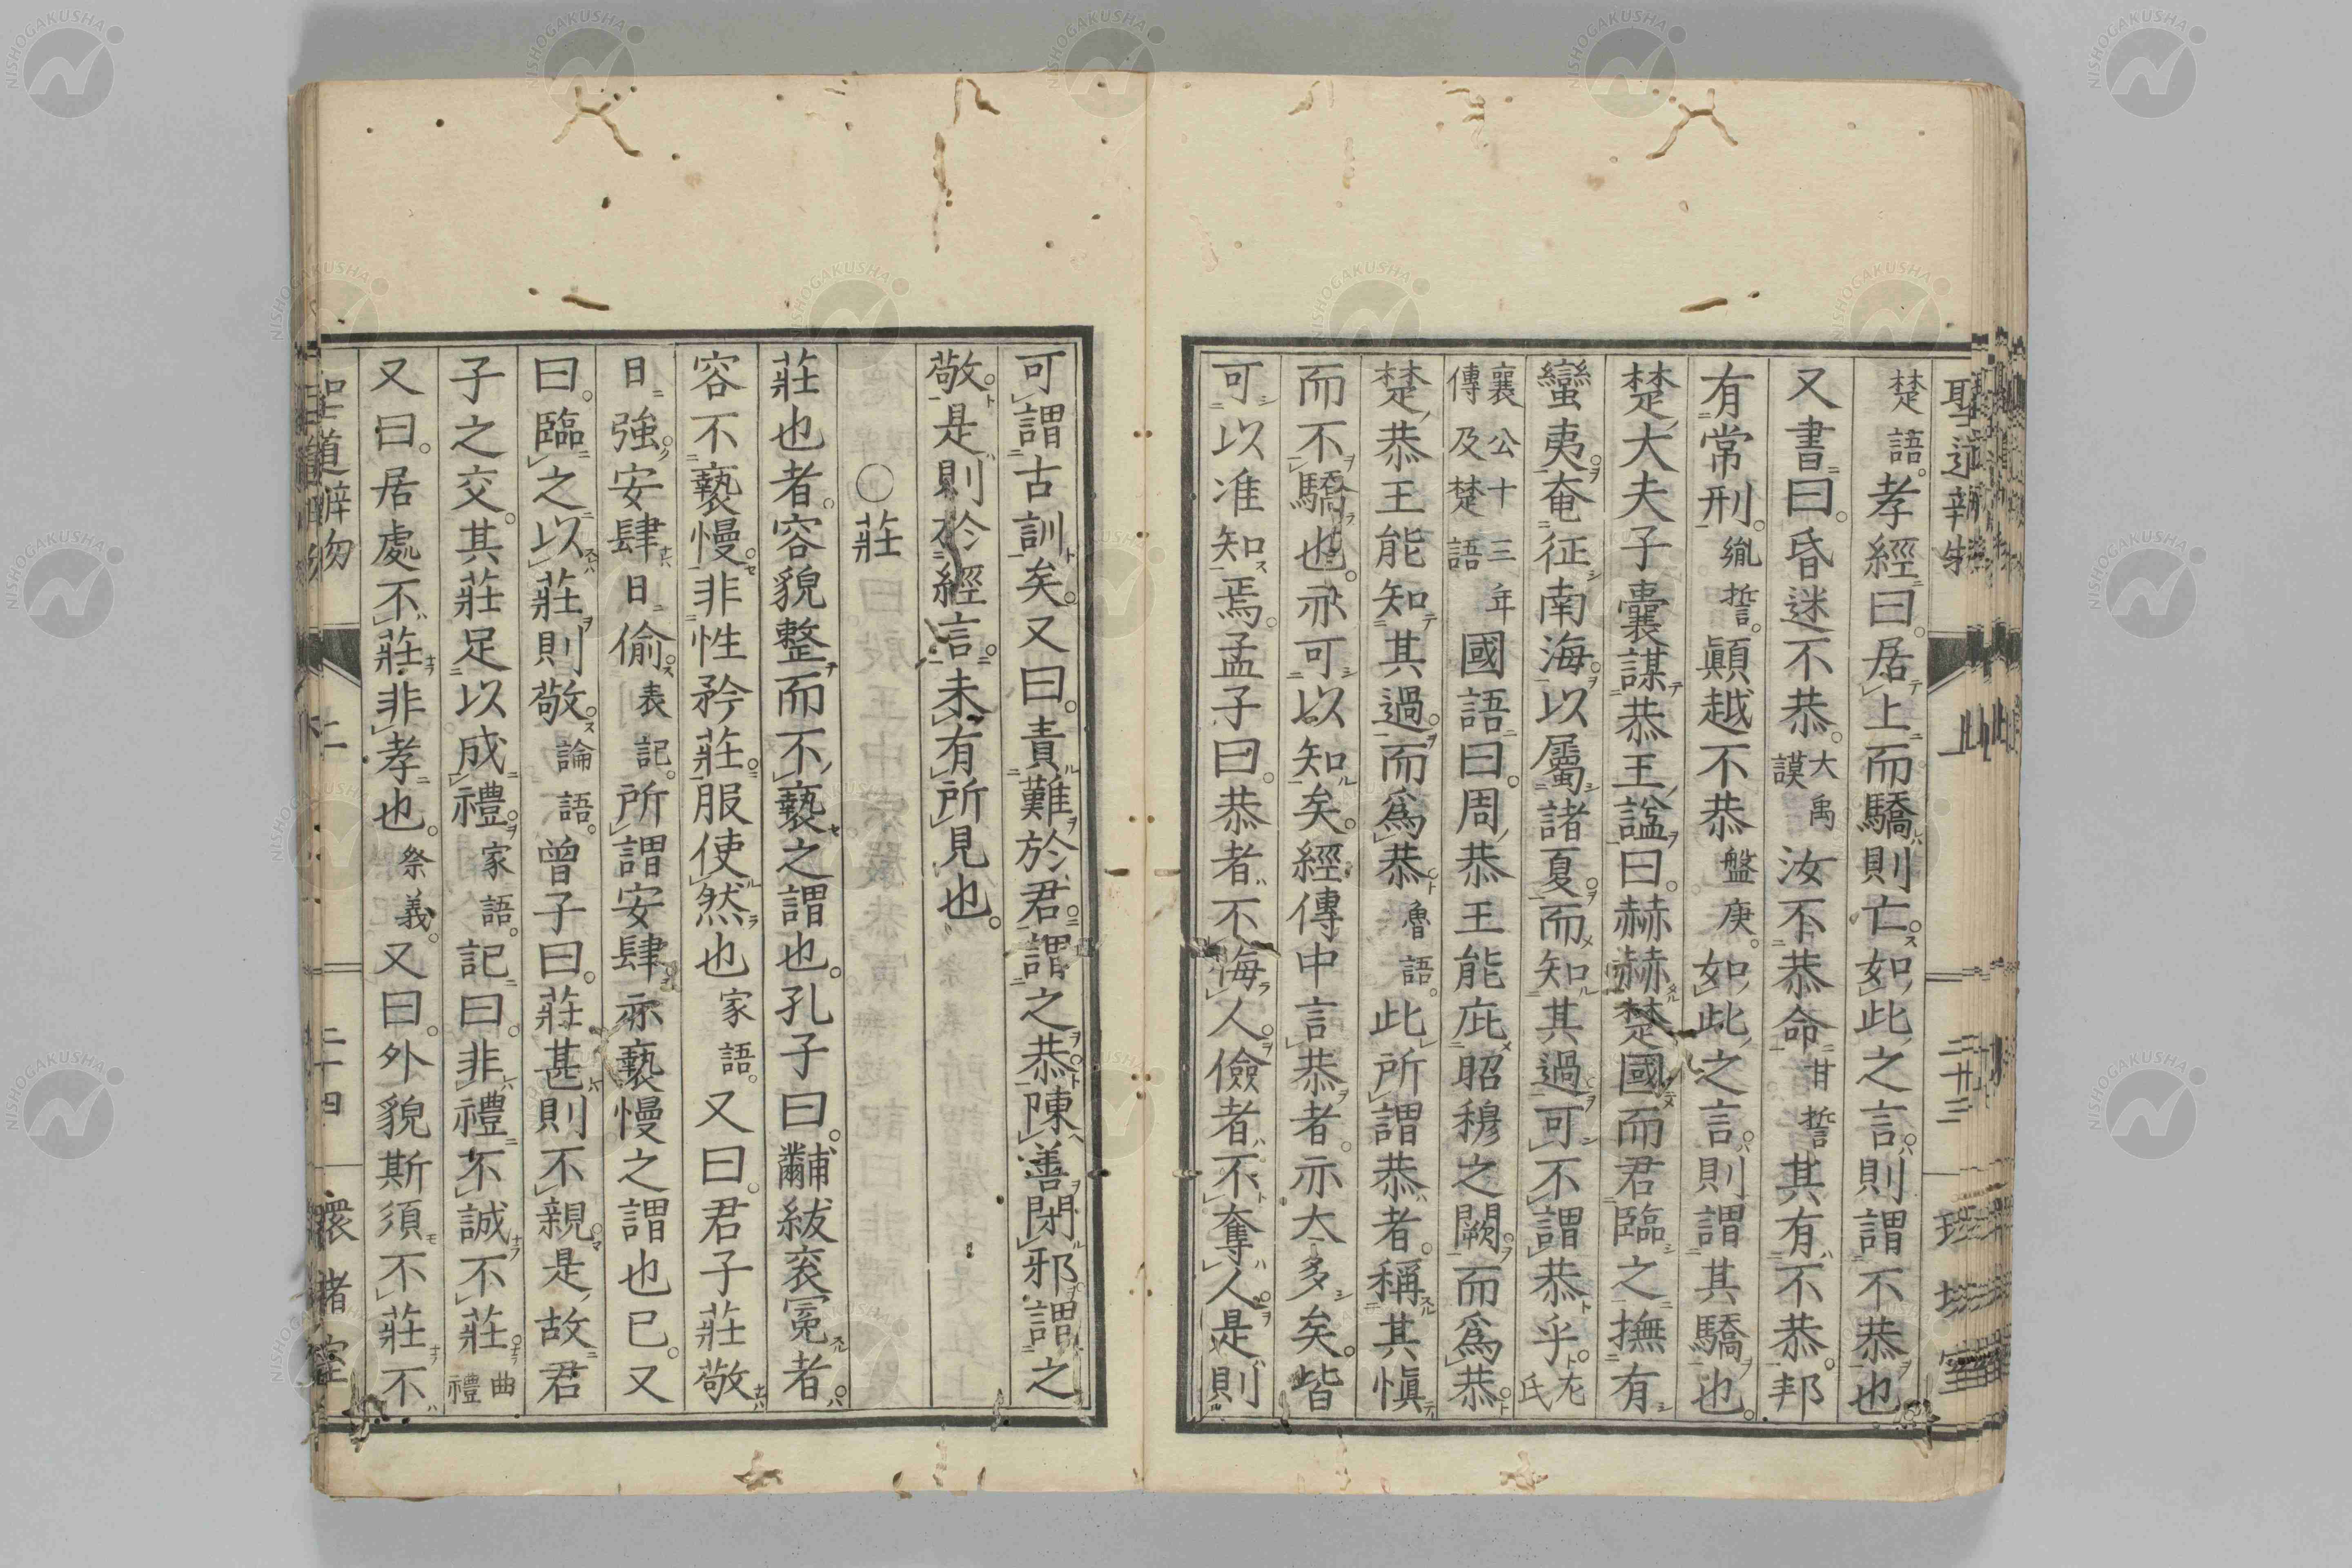 楚語孝經曰居上而驕則亡如此之言則謂不恭也
又書曰昏迷不恭大禹謨汝不恭命甘誓其有不恭邦
有常刑胤誓顛越不恭盤庚如此之言則謂其驕也
楚大夫子囊謀恭王謚曰赫赫楚國而君臨之撫有
蠻夷奄征南海以屬諸夏而知其過可不謂恭乎左氏
襄公十三年傳及楚語國語曰周恭王能庇昭穆之闕而爲恭
楚恭王能知其過而爲恭魯語此所謂恭者稱其愼
而不驕也亦可以知矣經傳中言恭者亦大多矣皆
可以准知焉孟子曰恭者不侮人儉者不奪人是則
可謂古訓矣又曰責難於君謂之恭陳善閉邪謂之
敬是則於經言未有所見也
○莊
莊也者容貌整而不褻之謂也孔子曰黼紱衮冕者
容不褻慢非性矜莊服使然也家語又曰君子莊敬
日強安肆日偷表記所謂安肆亦褻慢之謂也已又
曰臨之以莊則敬論語曾子曰莊甚則不親是故君
子之交其莊足以成禮家語記曰非禮不誠不莊曲禮
又曰居處不莊非孝也祭義又曰外貌斯須不莊不
二十四
NISHOGAKUSHA